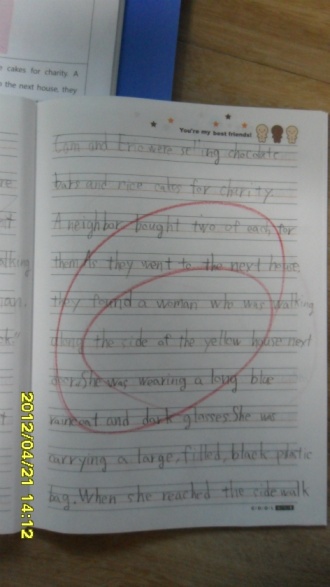 cakes for charity. A
the next house, they
You're my best friends!
Tom and Eric were selling chocolate
bars and rice cakes for charity.
A neighbor bought two of each for
them. As they went to the next house,
they found a woman who was walking
along the side of the yellow house next
door. She was wearing a long blue
raincoat and dark glasses. She was
carrying a large, filled, black plastic
bag. When she reached the side walk
2012/04/21 14:12